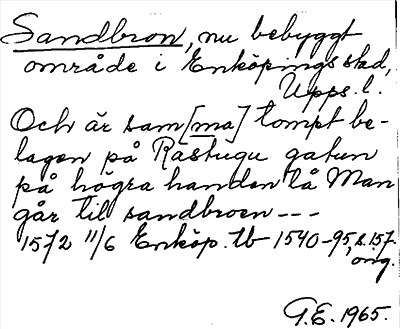 Sandbron, nu bebyggt
område i Enköpings stad,
Upps. l.
Och är sam[ma] tompt be-
lagen på Råstugu gatun
på högra handen lå Man
går til sandbroen ---
1572 11/6 Enköp. tb 1540-95, s. 157.
orig.
G.E. 1965.